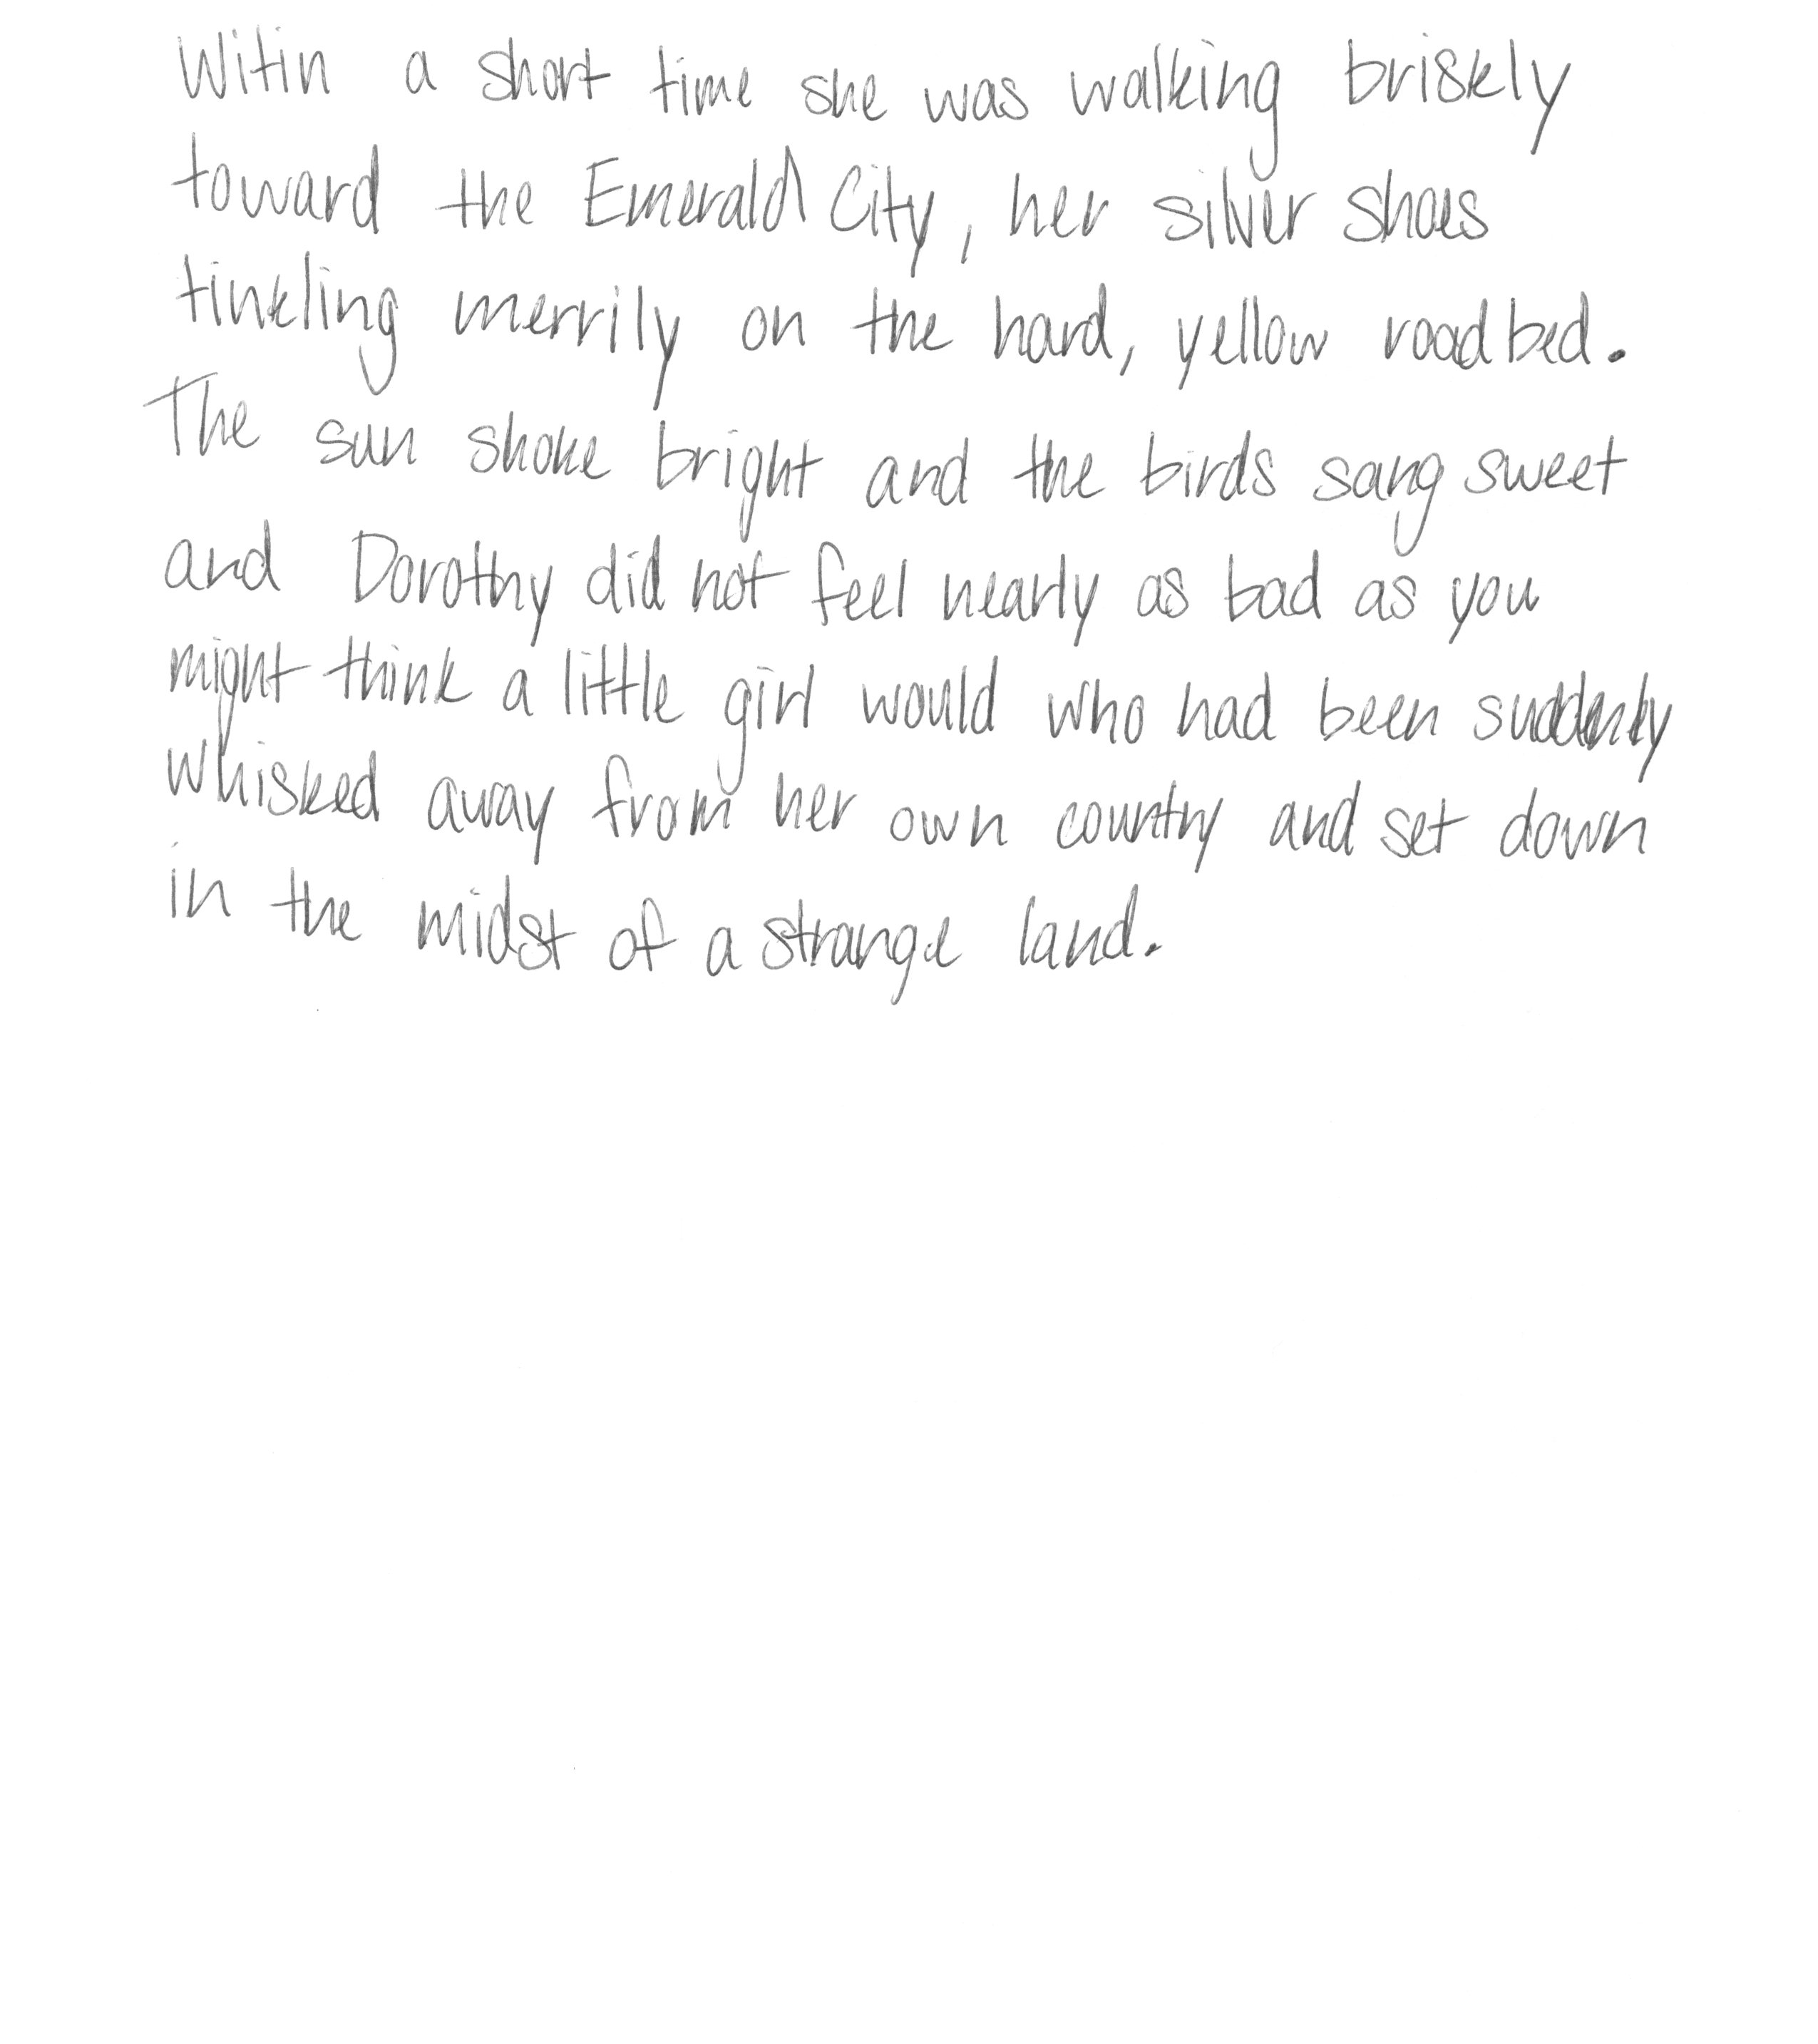 Witin a short time she was walking briskly
toward the Emerald City, her silver shoes
tinkling merrily on the hard, yellow roadbed.
The sun shone bright and the birds sang sweet
and Dorothy did not feel nearly as bad as you
might think a little girl would who had been suddenly
whisked away from her own country and set down
in the midst of a strange land.